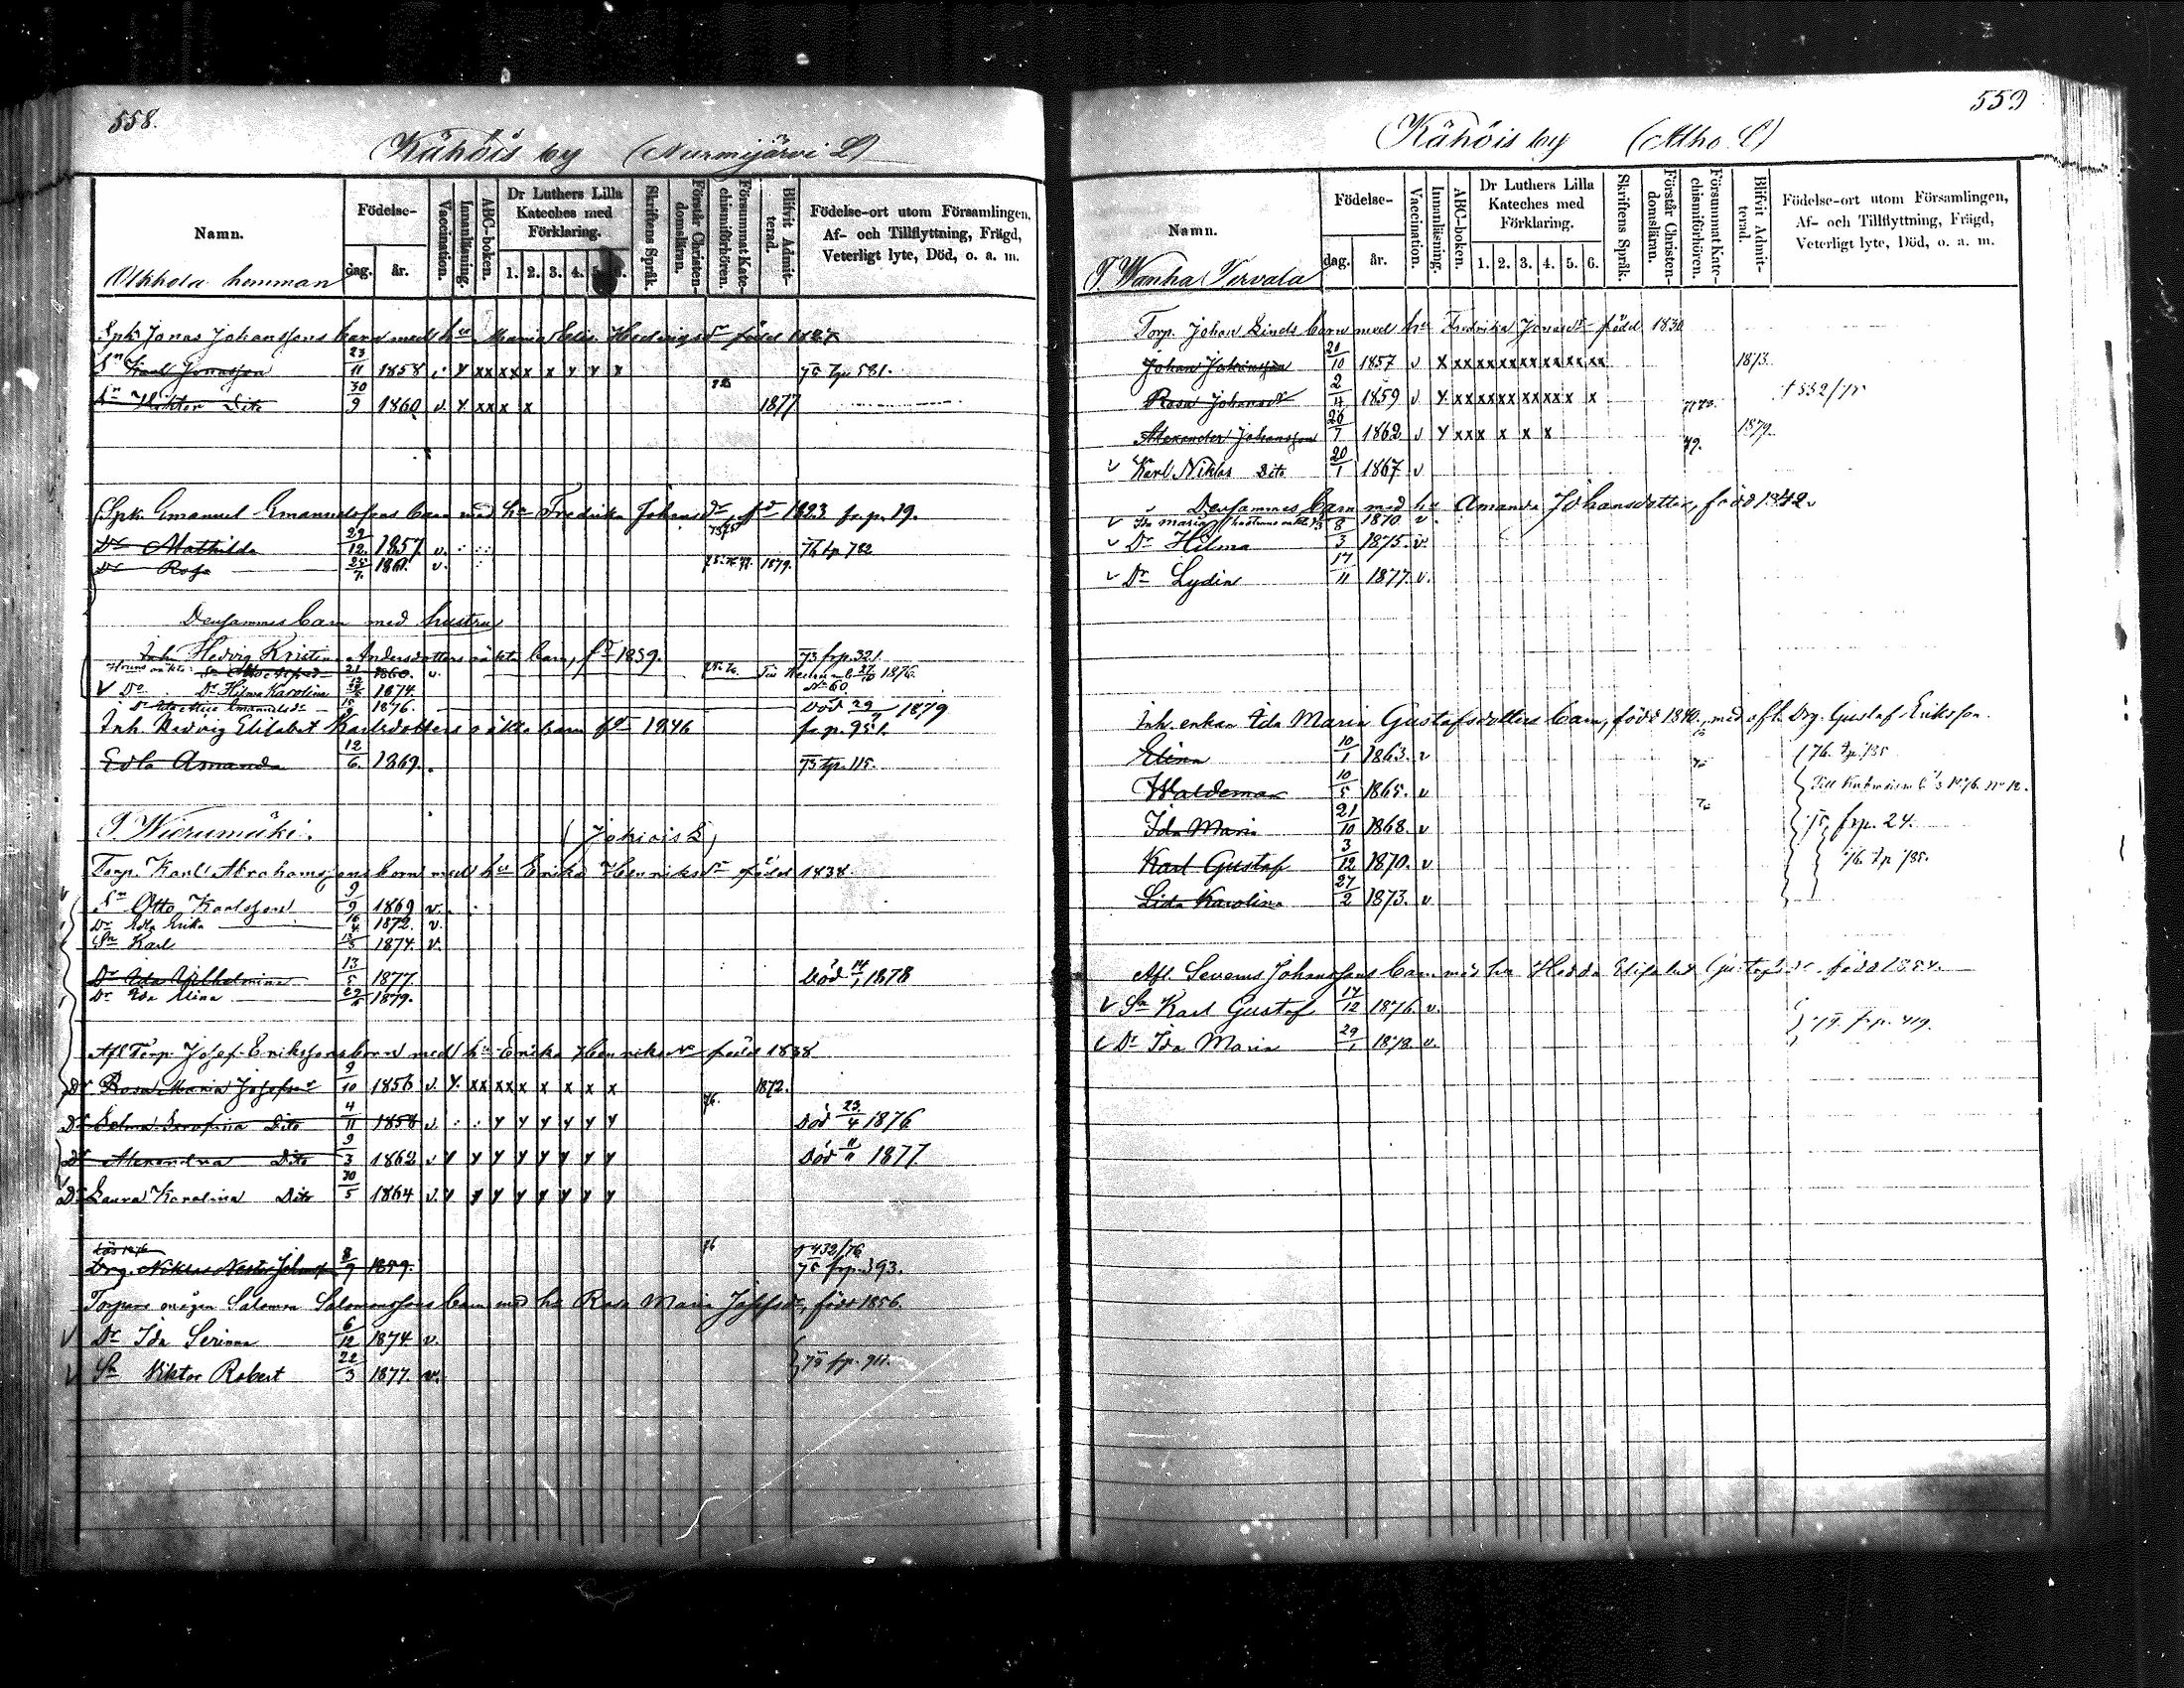 558.
Kähöis by (Nurmijärvi L)
Namn.
Födelse-
dag. år.
Vaccination.
Innanläsning.
ABC-boken.
Dr Luthers Lilla Kateches med Förklaring.
1. 2. 3. 4. 5. 6.
Skriftens Språk.
Förstår Christendomsläran.
Försummat Katechismiförhören.
Blifvit Admitterad.
Födelse-ort utom Församlingen, Af- och Tillflyttning, Frägd, Veterligt lyte, Död, o. a. m.
hemman
Jonas Johanssons barn med hu Maria Elis. Hedvigsdr född 1827
Sn Karl Jonasson 23/11 1858 v Y xx x x x x Y Y x 75 tp 581.
Sn Viktor Dito 30/9 1860 v. Y xx x x 1877
Spk. Emanuel Emanuelssons barn med hu Fredrika Johansdr, fd 1823 frp. 19.
Dr Mathilda 29/12 1857 v. 76 tp 782
Dr Rosa 25/7 1861. v. 1879.
Densammes barn med hustru
Inh Hedvig Kristina Andersdotters oäkta barn, fd 1839. 73 frp. 321.
1860. v. 1876. No 60
V Dr Dr Hilma Karolina 1874.
1876. Död 29 1879
Inh. Hedvig Elisabet Karlsdotters oäkta barn fd 1846 frp. 951.
Edla Amanda 12/6. 1869. 73 tp. 115.
T Wierumäki. (Jokiois L)
Torp. Karl Abrahamssons barn med hu Erika Henriksdr född 1838.
Sn Otto Karlsson 9/9 1869 v.
Dr Ida Erika 16/4 1872. v.
Sn Karl 13/3 1874. v.
Dr Ida Wilhelmina 13/5 1877. Död 14/1 1878
Dr Ida Elina 1879.
Afl Torp. Josef Erikssons barn med hu Erika Henriksdr född 1838
Dr Rosa Maria Josefsdr 9/10 1856 v. Y. xx xx x x x x x 1872.
Dr Selma Serafina Dito 4/11 1858 v. Y Y Y Y Y Y 76. Död 23/4 1876
Dr Alexandra Dito 9/3 1862 v Y Y Y Y Y Y Y Y Död 11/11 1877.
Dr Laura Karolina Dito 30/5 1864 v. Y Y Y Y Y Y Y Y
Drg. Niklas 8/9 1859. 76 432/76
75 frp. 393.
Torpare mågen Salomon Salomonssons barn med hu Rosa Maria Josefsdr, född 1856.
V Dr Ida Serinna 6/12 1874. v.
V Sn Viktor Robert 22/3 1877. v. 79 fp. 911.
559
Kähöis by (Alho L)
Namn.
Födelse-
dag. år.
Vaccination.
Innanläsning.
ABC-boken.
Dr Luthers Lilla Kateches med Förklaring.
1. 2. 3. 4. 5. 6.
Skriftens Språk.
Förstår Christendomsläran.
Försummat Katechismiförhören.
Blifvit Admitterad.
Födelse-ort utom Församlingen, Af- och Tillflyttning, Frägd, Veterligt lyte, Död, o. a. m.
T Wanha Tervala
Torp. Johan Linds barn med hu Fredrika Jonasdr född 1830
Johan Johansson 21/10 1857 v X xx xx xx xx xx xx xx 1873.
Rosa Johansdr 2/4 1859 v Y xx xx xx xx x x x 532/75
Alexander Johansson 26/7 1862 v Y xx x x x x 79. 1879.
v Karl Niklas Dito 20/1 1867 v
Densammes barn med hu Amanda Johansdotter, född 1842.
v Ida Maria 8 1870 v.
v Dr Hilma 3 1875. v.
v Dr Lydia 17/11 1877. v.
Inh. enkan Ida Maria Gustafsdotters barn, född 1840., med afl. Drg. Gustaf Eriksson.
Elina 10/1 1863. v 76. tp 135
Waldemar 10/5 1865. v
Ida Maria 21/10 1868. v 75, frp. 24.
Karl Gustaf 3/12 1870. v 76. tp 135.
Lida Karolina 27/2 1873. v
Afl. Severus Johanssons barn med hu Hedda Elisabet Gustafsdr.
v Sn Karl Gustaf 17/12 1876. v.
v Dr Ida Maria 29/1 1878. v. 79. frp. 419.